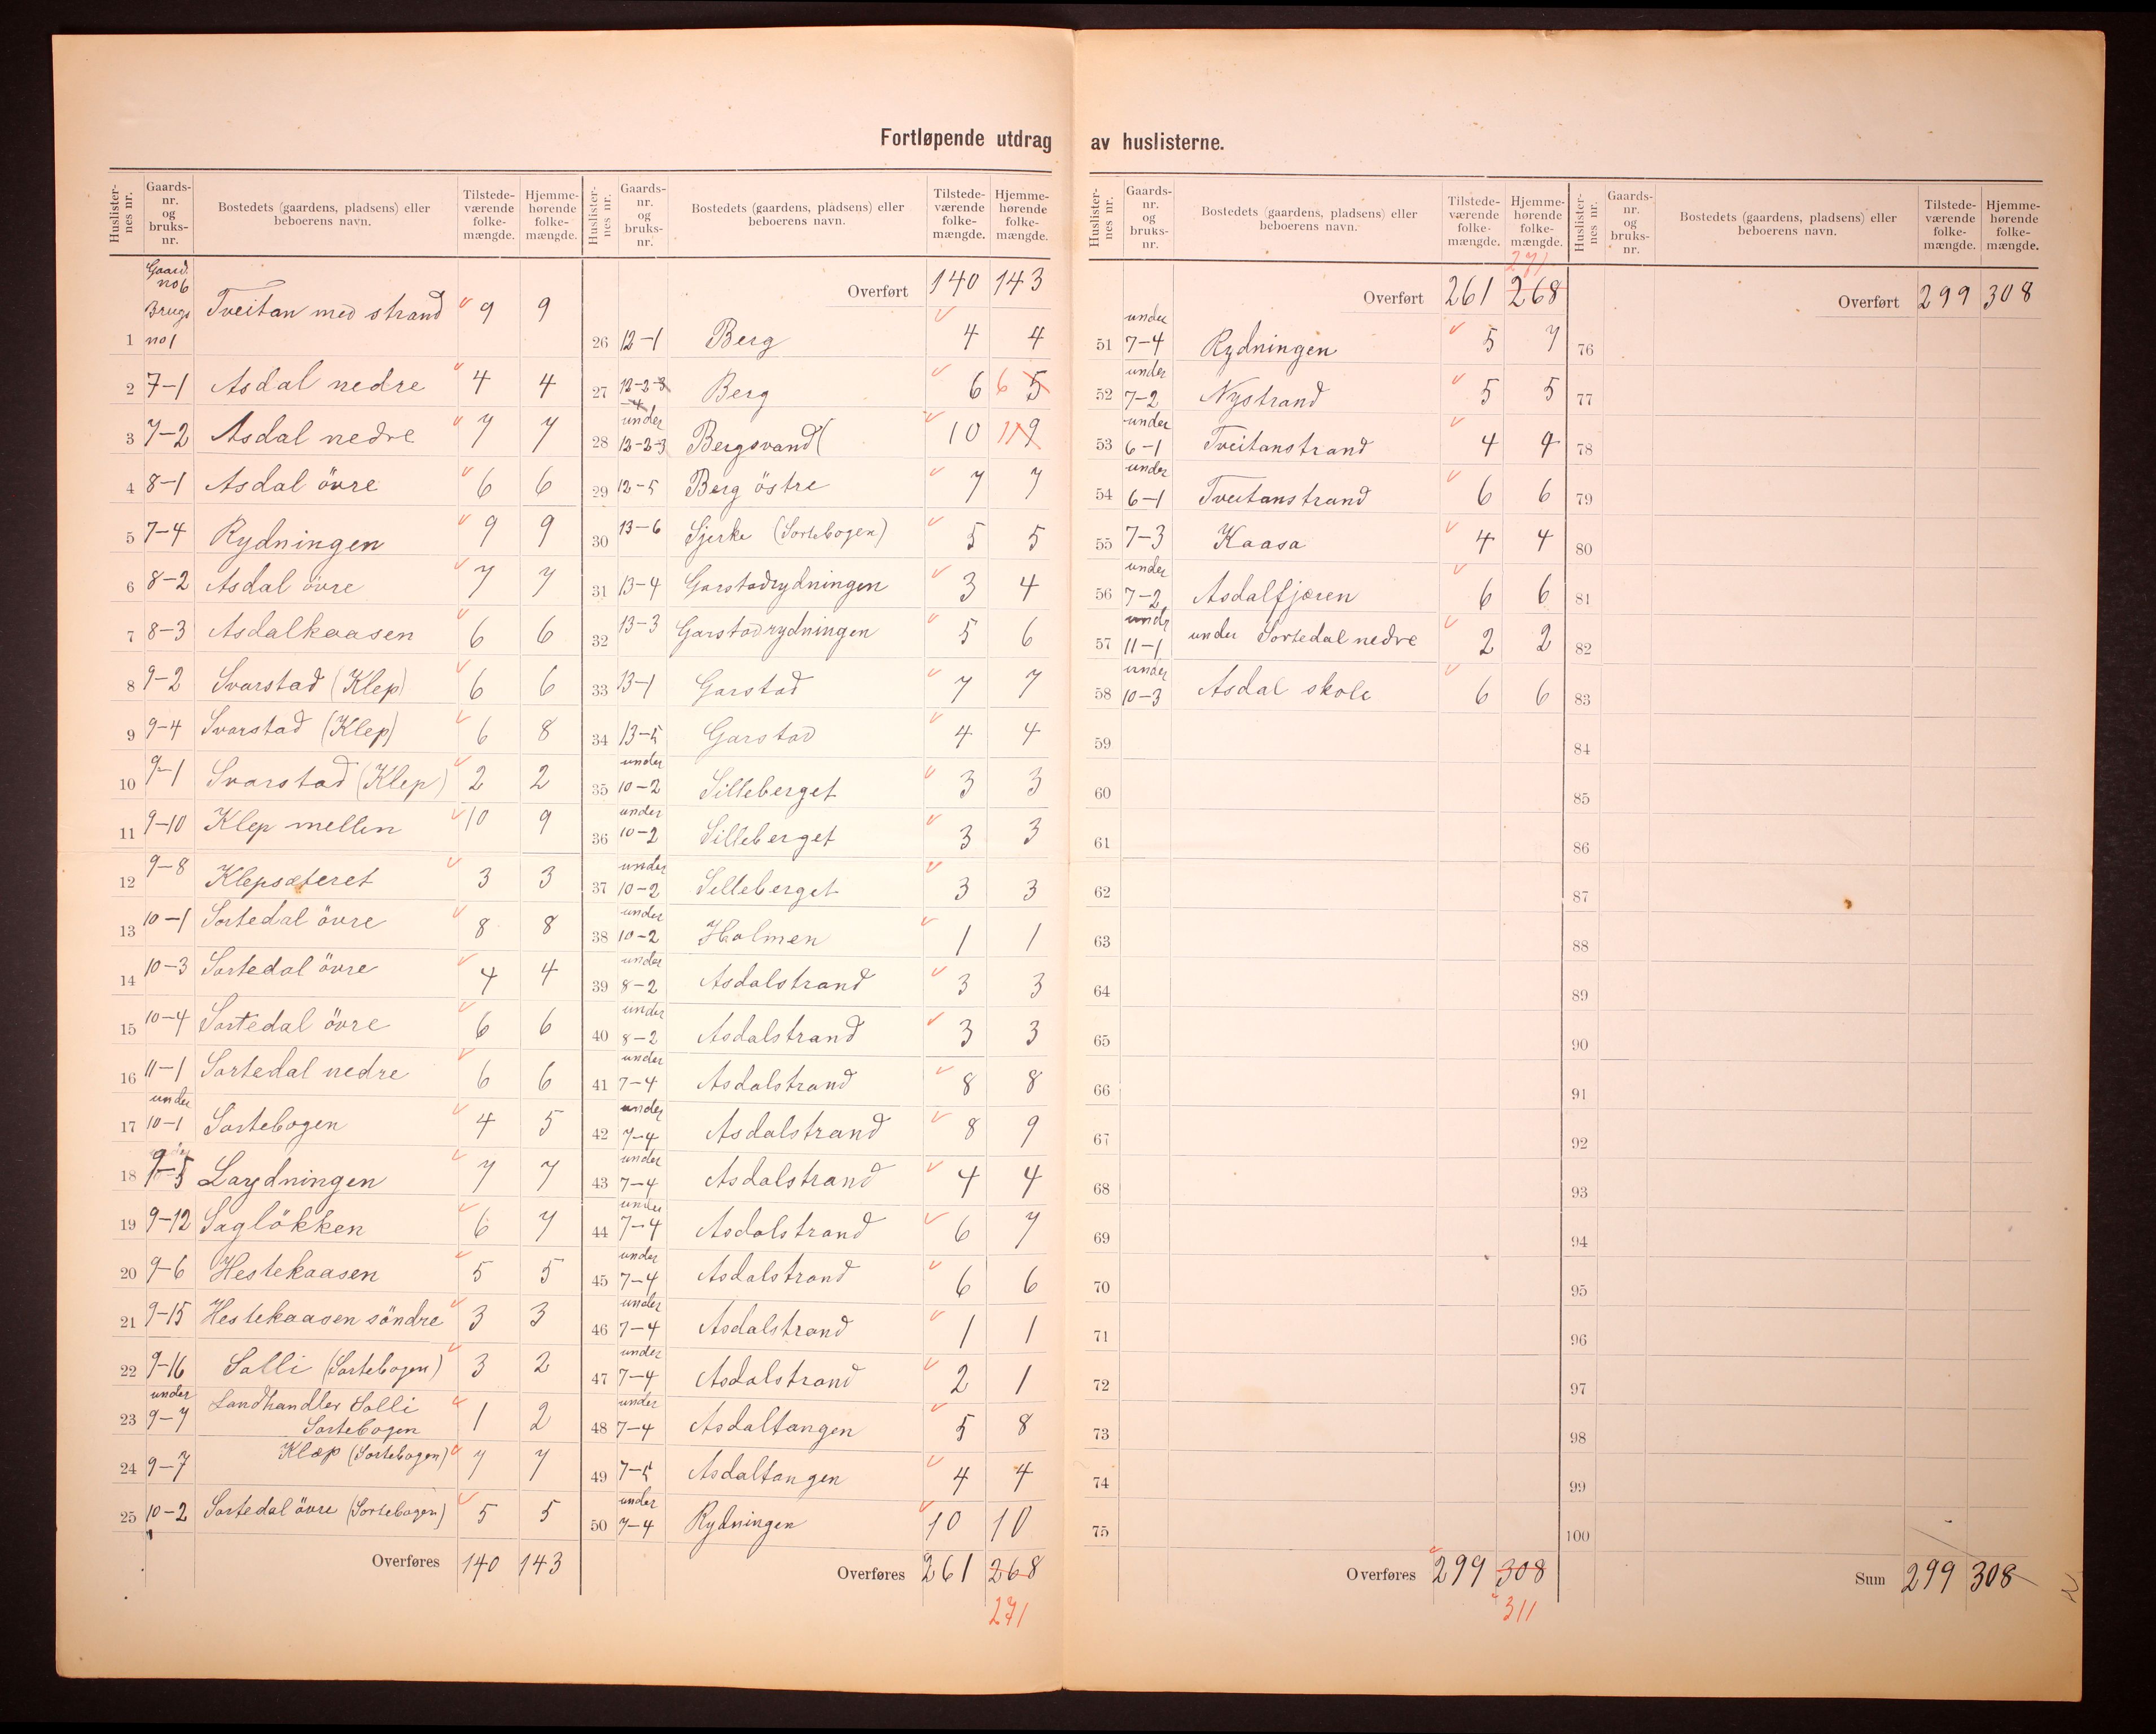 Fortløpende utdrag av huslisterne.
Huslisternes nr. | Gaards-nr. og bruks-nr. | Bostedets (gaardens, pladsens) eller beboerens navn. | Tilstedeværende folkemængde. | Hjemmehørende folkemængde.
Gaard no 6
Brugs
1 no 1 Tveitan med strand 9 9
2 7-1 Asdal nedre 4 4
3 7-2 Asdal nedre 7 7
4 8-1 Asdal övre 6 6
5 7-4 Rydningen 9 9
6 8-2 Asdal övre 7 7
7 8-3 Asdalkaasen 6 6
8 9-2 Svarstad (Klep) 6 6
9 9-4 Svarstad (Klep) 6 8
10 9-1 Svarstad (Klep) 2 2
11 9-10 Klep mellem 10 9
12 9-8 Klepsæteret 3 3
13 10-1 Sortedal övre 8 8
14 10-3 Sortedal övre 4 4
15 10-4 Sortedal övre 6 6
16 11-1 Sortedal nedre 6 6
17 under 10-1 Sortebogen 4 5
18 9-5 Larydningen 7 7
19 9-12 Saglökken 6 7
20 9-6 Hestekaasen 5 5
21 9-15 Hestekaasen söndre 3 3
22 9-16 Solli (Sortebogen) 3 2
23 under 9-7 Landhandler Solli
Sortebogen 1 2
24 9-7 Klæp (Sortebogen) 7 7
25 10-2 Sortedal övre (Sortebogen) 5 5
Overføres 140 143
Huslisternes nr. | Gaards-nr. og bruks-nr. | Bostedets (gaardens, pladsens) eller beboerens navn. | Tilstedeværende folkemængde. | Hjemmehørende folkemængde.
Overført 140 143
26 12-1 Berg 4 4
27 12-2-3-4 Berg 6 6 5
28 under 12-2-3 Bergsvand( 10 11 9
29 12-5 Berg östre 7 7
30 13-6 Sjerke (Sortebogen) 5 5
31 13-4 Garstadrydningen 3 4
32 13-3 Garstadrydningen 5 6
33 13-1 Garstad 7 7
34 13-5 Garstad 4 4
35 under 10-2 Silleberget 3 3
36 under 10-2 Silleberget 3 3
37 under 10-2 Silleberget 3 3
38 under 10-2 Holmen 1 1
39 under 8-2 Asdalstrand 3 3
40 under 8-2 Asdalstrand 3 3
41 under 7-4 Asdalstrand 8 8
42 under 7-4 Asdalstrand 8 9
43 under 7-4 Asdalstrand 4 4
44 under 7-4 Asdalstrand 6 7
45 under 7-4 Asdalstrand 6 6
46 under 7-4 Asdalstrand 1 1
47 under 7-4 Asdalstrand 2 1
48 under 7-4 Asdaltangen 5 8
49 7-5 Asdaltangen 4 4
50 under 7-4 Rydningen 10 10
Overføres 261 268
271
Huslisternes nr. | Gaards-nr. og bruks-nr. | Bostedets (gaardens, pladsens) eller beboerens navn. | Tilstedeværende folkemængde. | Hjemmehørende folkemængde.
271
Overført 261 268
51 under 7-4 Rydningen 5 7
52 under 7-2 Nystrand 5 5
53 under 6-1 Tveitanstrand 4 4
54 under 6-1 Tveitanstrand 6 6
55 7-3 Kaasa 4 4
56 under 7-2 Asdalfjæren 6 6
57 under 11-1 under Sortedal nedre 2 2
58 under 10-3 Asdal skole 6 6
59
60
61
62
63
64
65
66
67
68
69
70
71
72
73
74
75
Overføres 299 308
311
Huslisternes nr. | Gaards-nr. og bruks-nr. | Bostedets (gaardens, pladsens) eller beboerens navn. | Tilstedeværende folkemængde. | Hjemmehørende folkemængde.
Overført 299 308
76
77
78
79
80
81
82
83
84
85
86
87
88
89
90
91
92
93
94
95
96
97
98
99
100
Sum 299 308